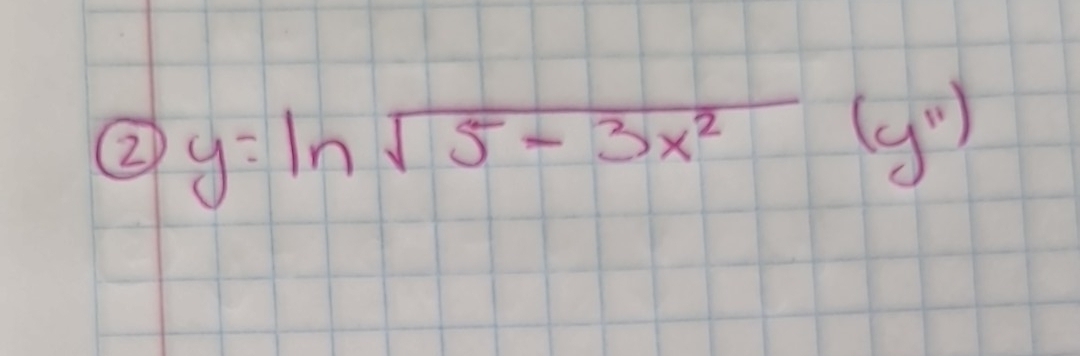 ② y= ln √5 - 3x² (y'')